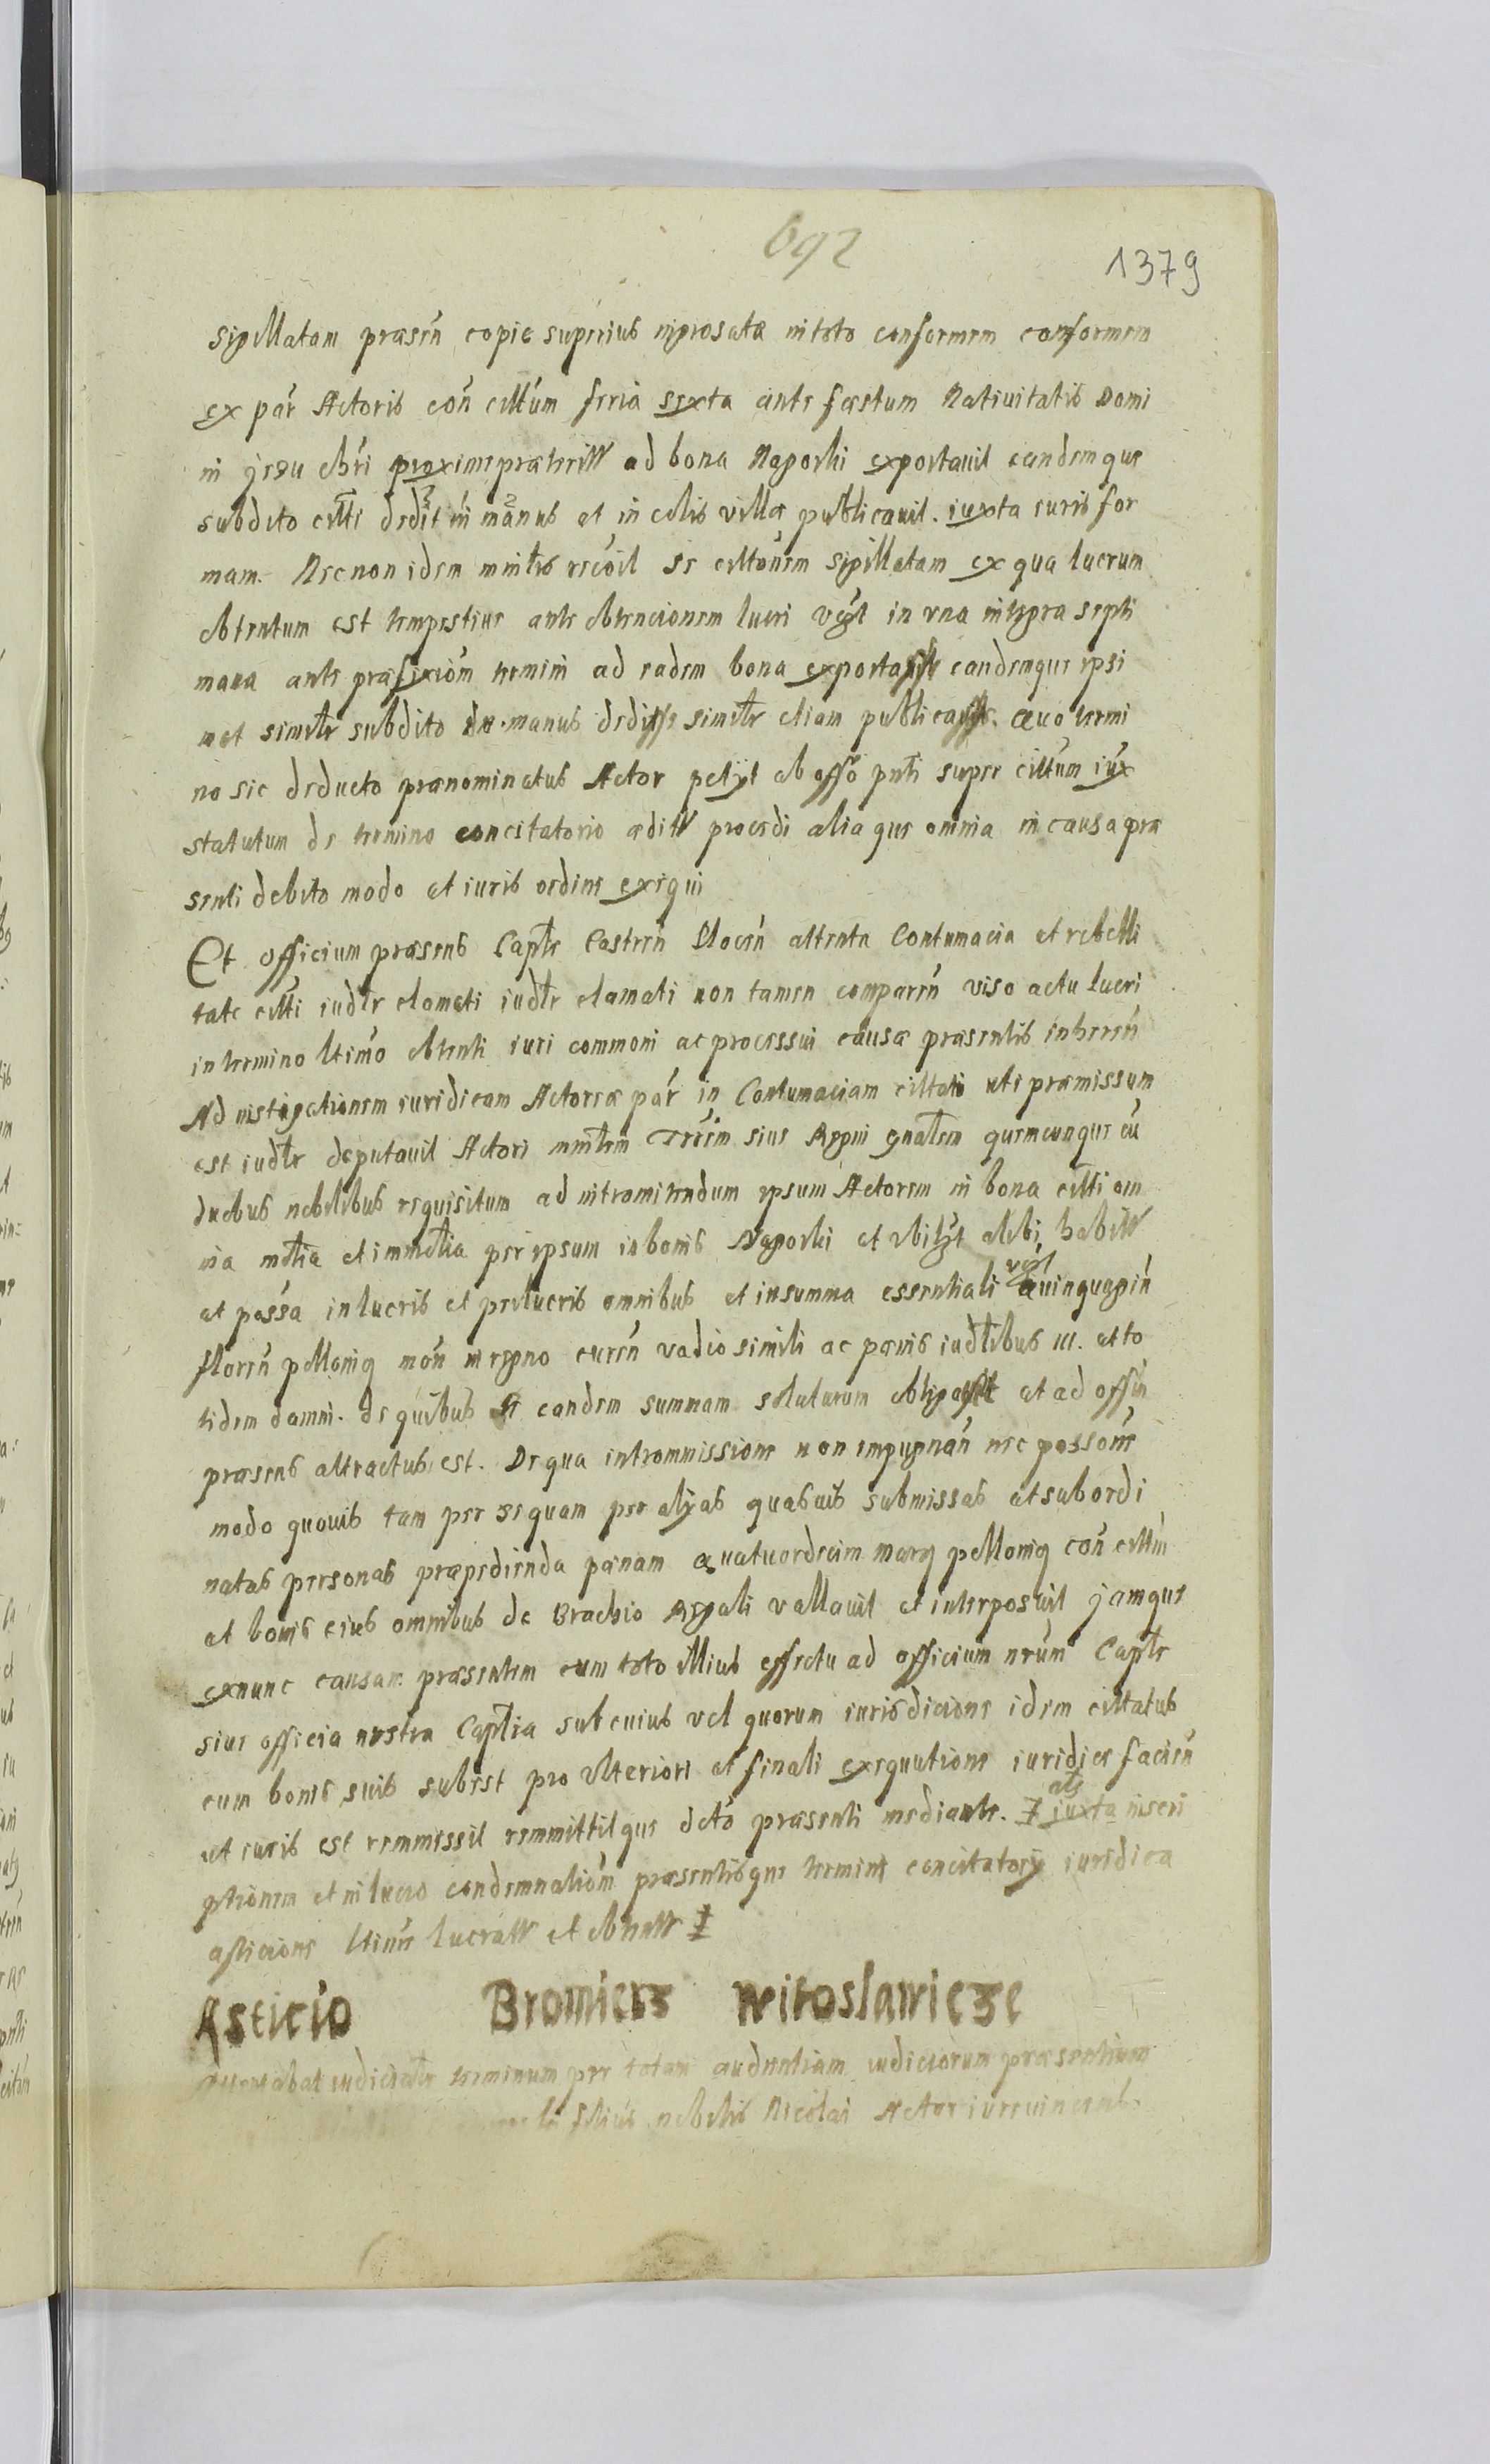 692
1379
sigillatam praesen̄ copie superius ingrosatæ in toto conformem conformem
ex par̄ Actoris con̄ citt̄um feria sexta ante fæstum Natiuitatis Domi
ni Jesu chr̄i proxime præteritt̄ ad bona Naporki exportauit eandemque
subdito citt̄i dedit in manus et in colis villæ publicauit. iuxta iuris for
mam. Necnon idem minl̄is reco͞it se citt̄onem sigillatam ex qua lucrum
obtentum est tempestiue ante obtencionem lucri vꝫt in vna integra septi
mana ante præfixio͞m termini ad eadem bona exportasse eandemque ipsi
met simil̄r subdito ad manus dedisse simil̄r etiam publicasse. Quo termi
no sic deducto prænominatus Actor petijt ab offō pn̄ti super citt̄um iux̄
statutum de termino concitatorio editt̄ procedi aliaque omnia in causa præ
senti debito modo et iuris ordine exequi
Et officium præsens Capl̄e Castren̄ Plocen̄ attenta Contumacia et rebelli
tate citt̄i iudl̄r clamati iudl̄r clamati non tamen comparen̄ viso actu lucri
in termino ltimo obtenti iuri commoni ac processui causæ præsentis inheren̄
Ad instigationem iuridicam Actoreæ par̄ in Contumaciam cittati uti præmissum
est iudl̄r deputauit Actori minl̄em Tr̄rem siue Regni gnal̄em quemcunque cū
duobus nobilibus requisitum ad intromittendum ipsum Actorem in bona citt̄i om
nia mōl̄ia et immōl̄ia per ipsum in bonis Naporki et vbilꝫt alibi habitt̄
et poss̄a in lucris et prolucris omnibus et in summa essentiali vꝫt Quinquagin̄
floren̄ pollonicq̄ mon̄ in regno curen̄ vadio simili ac pænis iudl̄ibus III. et to
tidem damni. de quibus se eandem summam soluturum obligasse et ad offin̄
præsens attractus est. De qua intromissione non impugnan̄ nec possōne
modo quouis tam per se quam per alias quasuis submissas et subordi
natas personas præpedienda pænam Quatuordecim marcꝫ pollonicꝫ con̄ citt̄m
et bonis eius omnibus de Brachio Regali vallauit et interposuit jamque
exnunc causam præsentem cum toto illius effectu ad officium nrum Capl̄e
siue officia nostra Capl̄ia sub cuius vel quorum iurisdicione idem cittatus
cum bonis suis subest pro vlteriori et finali exequutione iuridice facien̄
ut iuris est remmissit remmittitque dctō præsenti mediante. ‡ iuxta ats inscri
ptionem et in lucro condemnatio͞m præsentisque termini concitatorij iuridica
asticione ltime lucratt̄ et obtentt̄ ‡
Asticio Bromierz Miroslawicze
Attentabat iudicial̄r terminum per totam audientiam iudiciorum præsentium
filius nobilis Nicolai Actor iureuincens.